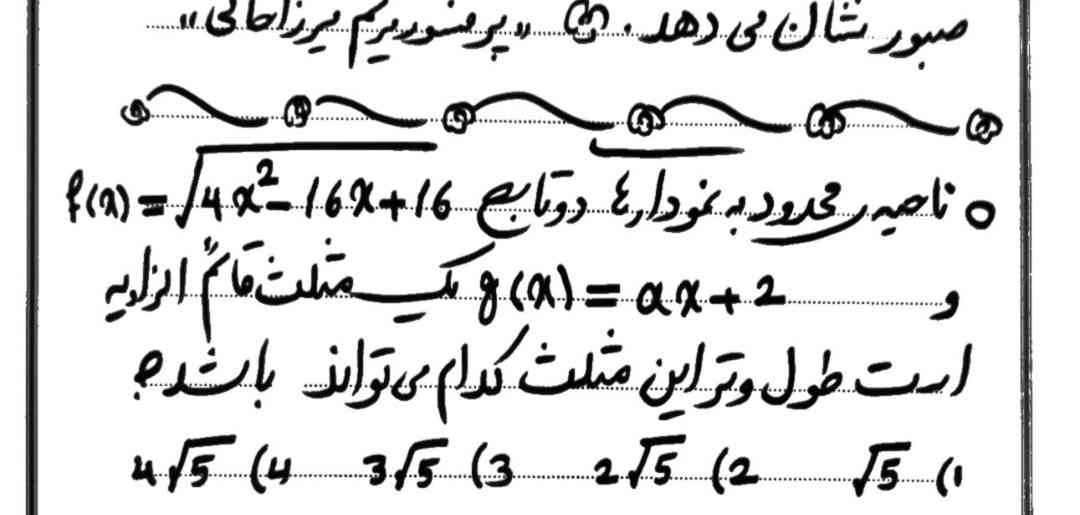 صبور نشان می دهد. «پرفسور مریم میرزاخانی»
ناحیه محدود به نمودارهای دو تابع f(x) = √4x²-16x+16
و g(x) = ax+2 یک مثلث قائم الزاویه
است طول وتر این مثلث کدام می تواند باشد؟
1) √5 2) 2√5 3) 3√5 4) 4√5